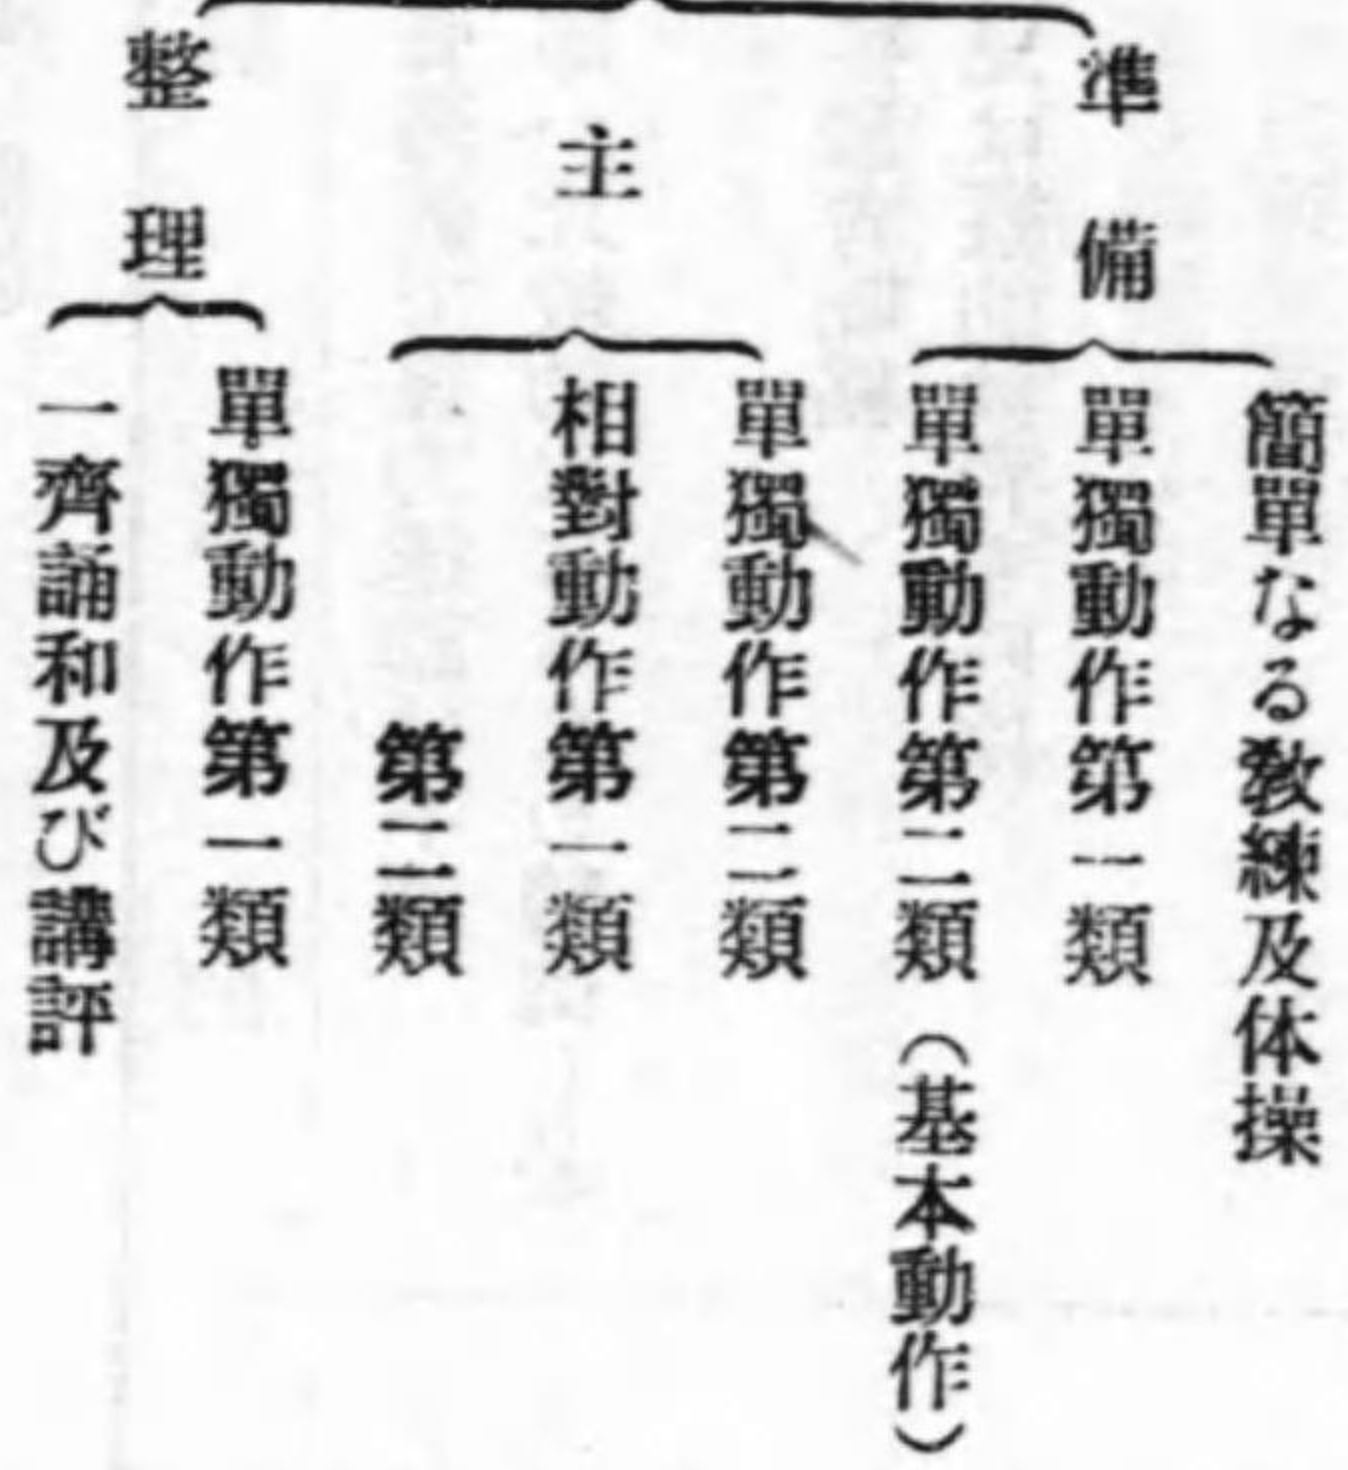 準備
簡單なる教練及体操
單獨動作第一類
單獨動作第二類（基本動作）
主
單獨動作第二類
相對動作第一類
第二類
整理
單獨動作第一類
一齊誦和及び講評